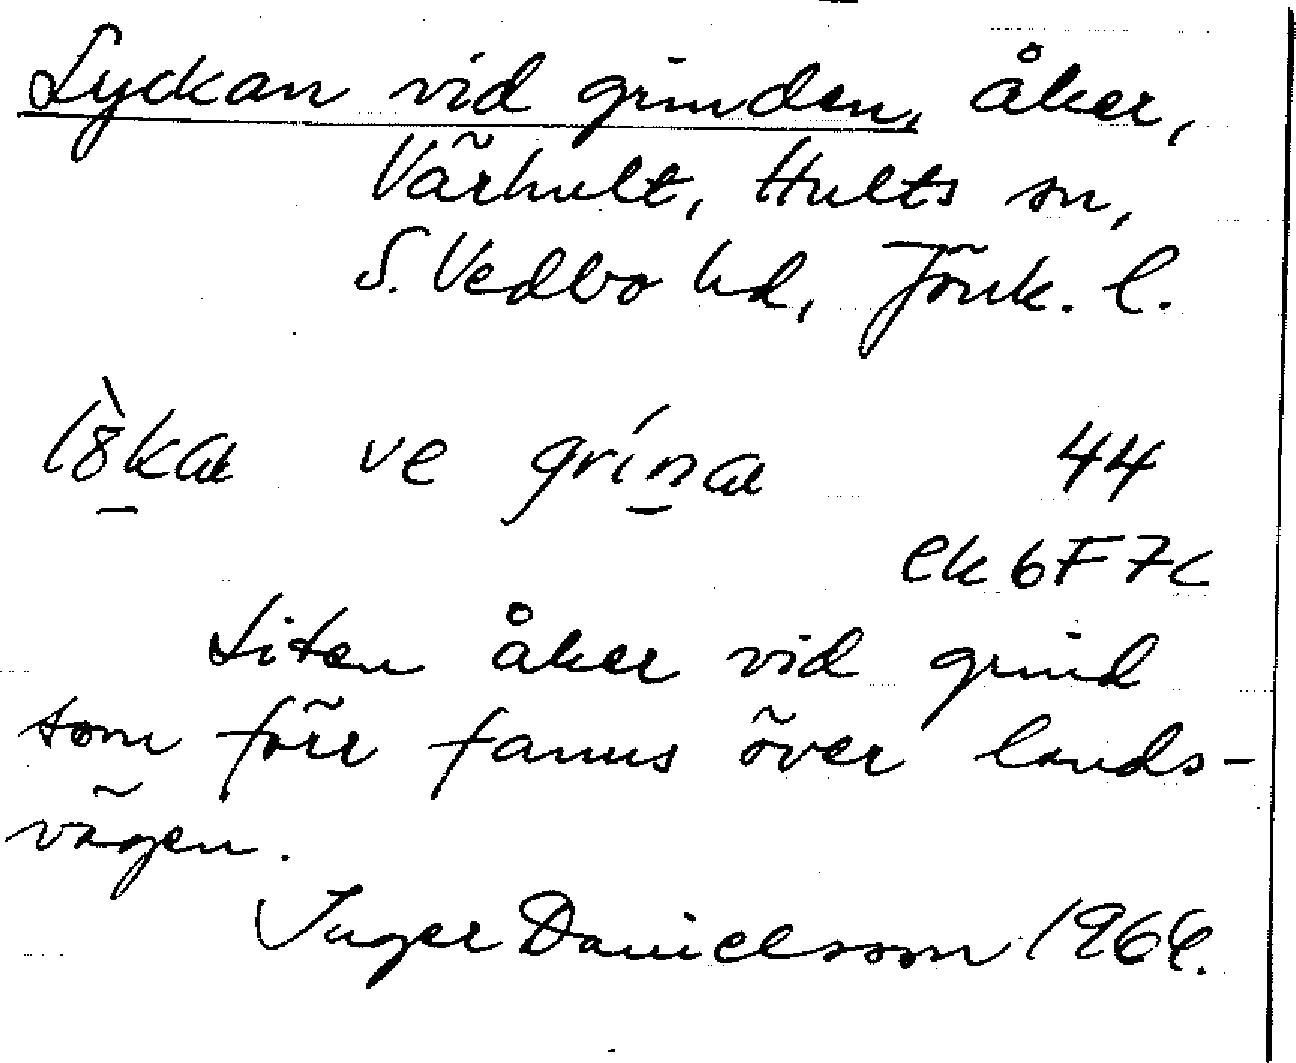 Lyckan vid grinden, åker,
Värhult, Hults sn,
S. Vedbo hd, Jönk. l.
l8̀ka ve grína 44
ek 6F 7c
Liten åker vid grind
som förr fanns över lands-
vägen.
Inger Danielsson 1964.